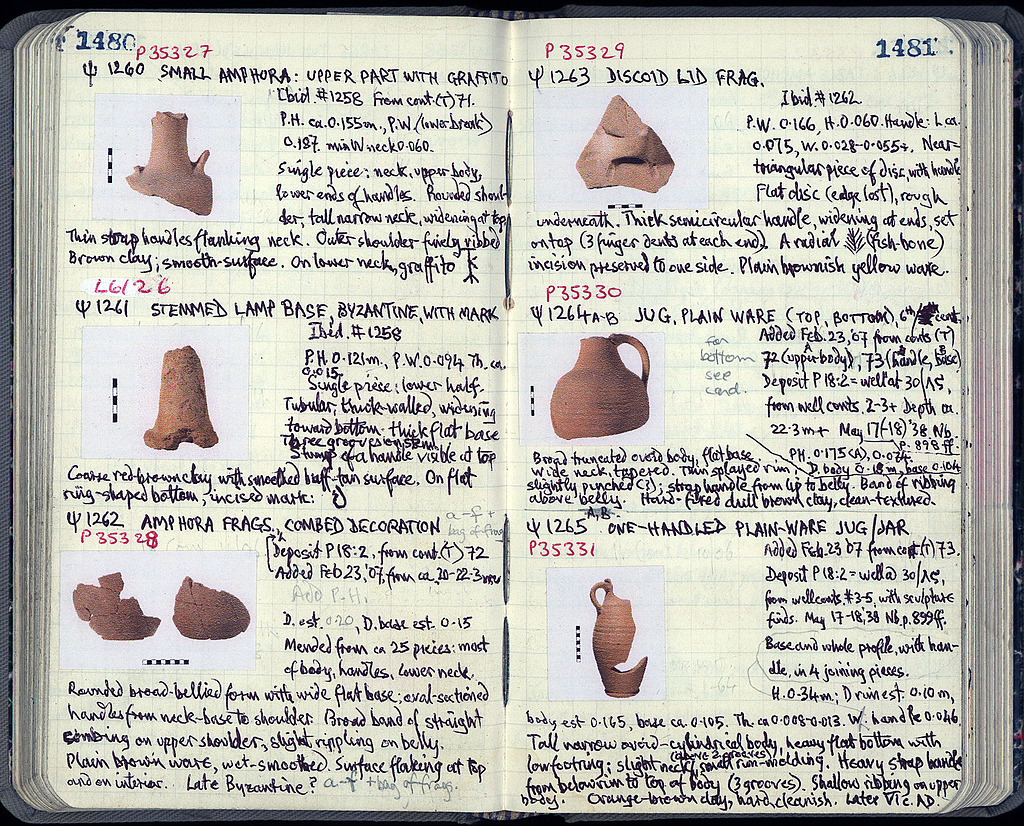 1480
P35327
Ψ 1260 SMALL AMPHORA: UPPER PART WITH GRAFFITO
Ibid. #1258 From cont.(T)71.
P.H. ca. 0.155m., P.W. (lower break)
0.137. min W neck 0.060.
Single piece: neck, upper body,
lower ends of handles. Rounded shoul-
der, tall narrow neck, widening at top
Thin strap handles flanking neck. Outer shoulder finely ribbed
Brown clay; smooth surface. On lower neck, graffito
L6126
Ψ 1261 STEMMED LAMP BASE, BYZANTINE, WITH MARK
Ibid. #1258
P.H. 0.121m., P.W. 0.094 Th. ca.
0.015
Single piece: lower half.
Tubular, thick-walled, widening
toward bottom. thick flat base
Three grooves on stem.
Stump of a handle visible at top
Coarse red-brown clay with smoothed buff-tan surface. On flat
ring-shaped bottom, incised mark:
Ψ 1262 AMPHORA FRAGS., COMBED DECORATION
a-f +
bag of frags
P35328
Deposit P18:2, from cont.(T) 72
Added Feb 23, '07, from ca. 20-22.3m
Add P.H.
D. est. 0.20, D. base est. 0.15
Mended from ca 25 pieces: most
of body, handles, lower neck.
Rounded broad-bellied form with wide flat base; oval-sectioned
handles from neck-base to shoulder. Broad band of straight
combing on upper shoulder, slight rippling on belly.
Plain brown ware, wet-smoothed. Surface flaking at top
and on interior. Late Byzantine? a-f + bag of frags.
1481
P35329
Ψ 1263 DISCOID LID FRAG.
Ibid. #1262
P.W. 0.166, H. 0.060. Handle: L ca.
0.075, W. 0.028-0.055+. Near-
triangular piece of disc, with handle
Flat disc (edge lost), rough
underneath. Thick semicircular handle, widening at ends, set
on top (3 finger dents at each end). A radial (fish-bone)
incision preserved to one side. Plain brownish yellow ware.
P35330
Ψ 1264 A-B JUG, PLAIN WARE (TOP, BOTTOM), 6th cent.
for
bottom
see
card.
Added Feb. 23, '07 from conts (T)
72 (upper body), 73 (handle, base)
Deposit P18:2 = well at 30/ΛΣ,
from well conts. 2-3+ Depth ca.
22.3m+ May 17(-18) '38 Nb.
P. 898 ff
PH. 0.175 (A), 0.074
Broad truncated ovoid body, flat base. D. body 0.18m, base 0.104
wide neck, tapered. Thin splayed rim,
slightly pinched (?); strap handle from lip to belly. Band of ribbing
above belly. Hard-fired dull brown clay, clean-textured.
A, B
Ψ 1265 ONE-HANDLED PLAIN-WARE JUG/JAR
P35331
Added Feb. 23 '07 from cont.(T) 73.
Deposit P18:2 = well @ 30/ΛΣ,
from well conts #3-5, with sculpture
finds. May 17-18, '38 Nb p. 899 ff.
Base and whole profile, with han-
dle, in 4 joining pieces.
H. 0.34m; D rim est. 0.10m,
body est 0.165, base ca. 0.105. Th. ca 0.008-0.013. W. handle 0.046
Tall narrow ovoid-cylindrical body, heavy flat bottom with
low footring; slight neck (above 2 grooves), small rim-molding. Heavy strap handle
from below rim to top of body (3 grooves). Shallow ribbing on upper
body. Orange-brown clay, hard, cleanish. Later VI c. AD.